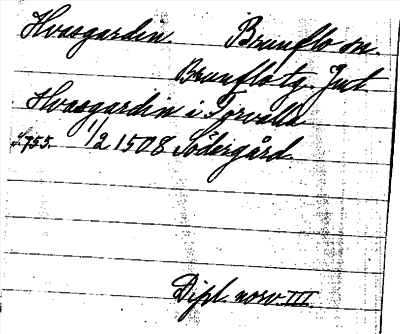 Hvasgarden Brunflo sn.
Brunflo tg. Jmt
Hvasgarden i Torvalla
s. 755. 1/2 1508 Södergård
Dipl. norv III.